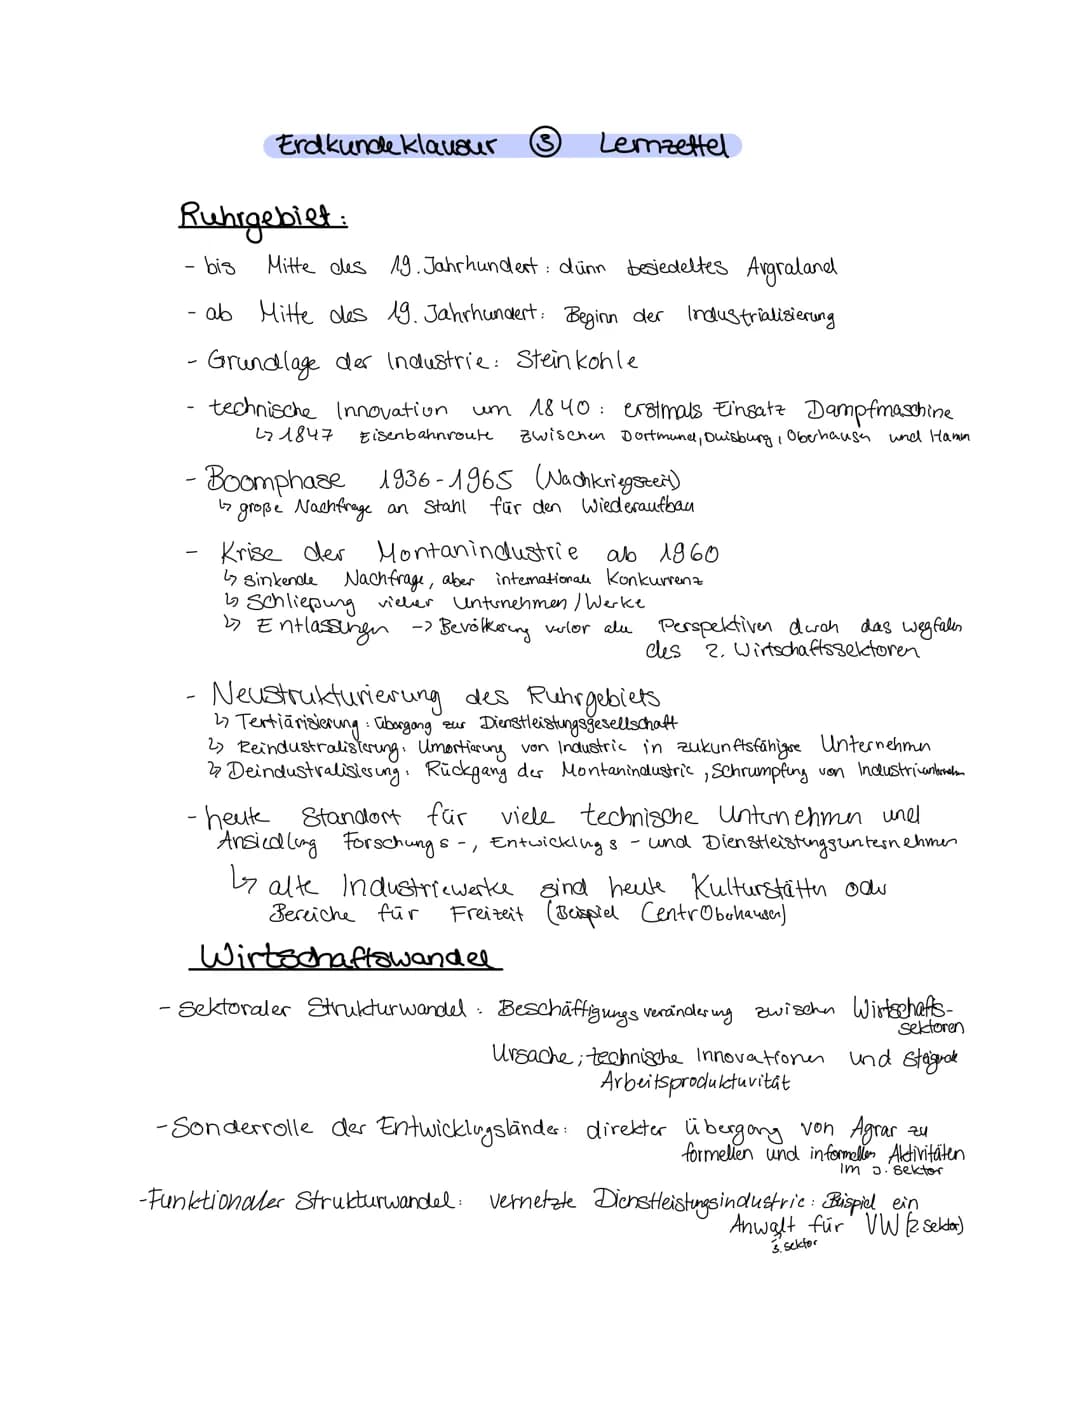 Erdkundeklausur ③ Lernzettel
Ruhrgebiet:
- bis Mitte des 19. Jahrhundert: dünn besiedeltes Argraland
- ab Mitte des 19. Jahrhundert: Beginn der Industrialisierung
- Grundlage der Industrie: Steinkohle
- technische Innovation um 1840: erstmals Einsatz Dampfmaschine
↳ 1847 Eisenbahnroute zwischen Dortmund, Duisburg, Oberhausen und Hamm
- Boomphase 1936-1965 (Nachkriegszeit)
↳ große Nachfrage an Stahl für den Wiederaufbau
- Krise der Montanindustrie ab 1960
↳ sinkende Nachfrage, aber internationale Konkurrenz
↳ Schließung vieler Unternehmen/Werke
↳ Entlassungen -> Bevölkerung verlor alle Perspektiven durch das wegfallen
des 2. Wirtschaftssektoren
- Neustrukturierung des Ruhrgebiets
↳ Tertiärisierung: Übergang zur Dienstleistungsgesellschaft
↳ Reindustralisierung: Umortierung von Industrie in zukunftsfähigere Unternehmen
↳ Deindustralisierung: Rückgang der Montanindustrie, Schrumpfung von
- heute Standort für viele technische Unternehmen und
Ansiedlung Forschungs-, Entwicklungs- und Dienstleistungsunternehmen
↳ alte Industriewerke sind heute Kulturstätten oder
Bereiche für Freizeit (Beispiel CentrOberhausen)
Wirtschaftswandel
- sektoraler Strukturwandel: Beschäftigungsveränderung zwischen Wirtschafts-
sektoren
Ursache; technische Innovationen und
Arbeitsproduktuvität
- Sonderrolle der Entwicklungsländer: direkter Übergang von Agrar zu
formellen und informellen Aktivitäten
im 3. Sektor
- Funktionaler Strukturwandel: vernetzte Dienstleistungsindustrie: Beispiel ein
Anwalt für VW (2 Sektor)
3. Sektor